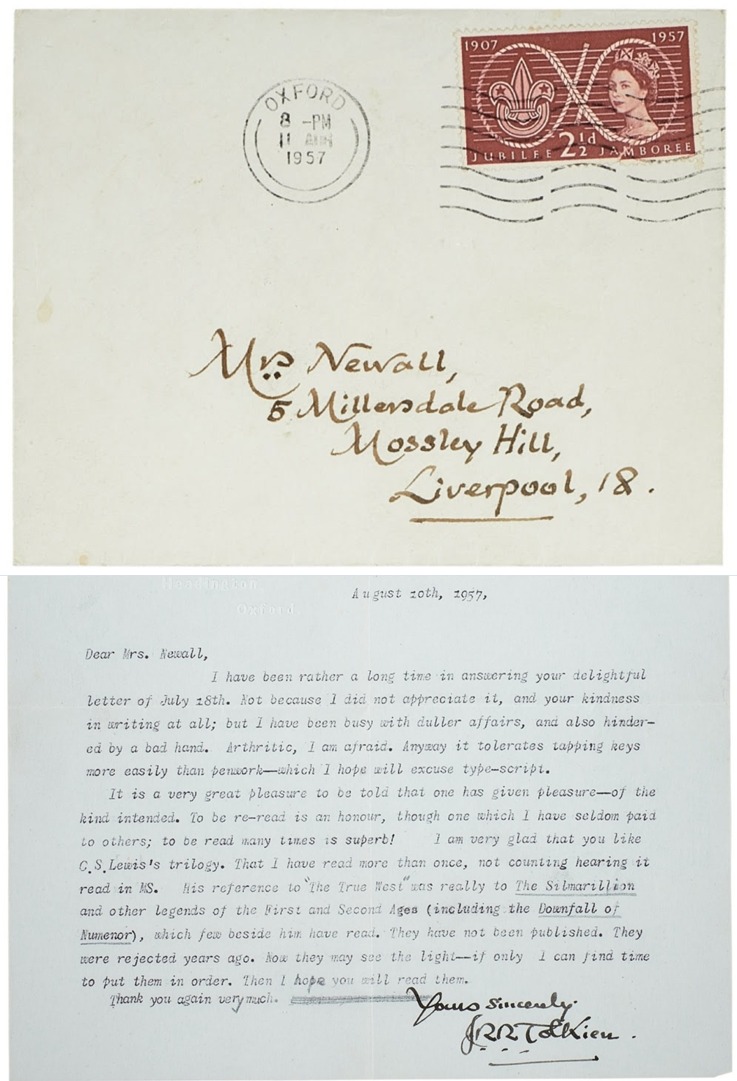 1907 1957
JUBILEE 2½d JAMBOREE
OXFORD
8 -PM
11 AUG
1957
Mrs Newall,
5 Millersdale Road,
Mossley Hill,
Liverpool, 18.
Headington
Oxford
August 10th, 1957,
Dear Mrs. Newall,
I have been rather a long time in answering your delightful
letter of July 18th. Not because I did not appreciate it, and your kindness
in writing at all; but I have been busy with duller affairs, and also hinder-
ed by a bad hand. Arthritic, I am afraid. Anyway it tolerates tapping keys
more easily than penwork—which I hope will excuse type-script.
It is a very great pleasure to be told that one has given pleasure—of the
kind intended. To be re-read is an honour, though one which I have seldom paid
to others; to be read many times is superb! I am very glad that you like
C.S.Lewis's trilogy. That I have read more than once, not counting hearing it
read in MS. His reference to "The True West" was really to The Silmarillion
and other legends of the First and Second Ages (including the Downfall of
Numenor), which few beside him have read. They have not been published. They
were rejected years ago. Now they may see the light—if only I can find time
to put them in order. Then I hope you will read them.
Thank you again very much.
Yours sincerely
J.R.R. Tolkien.